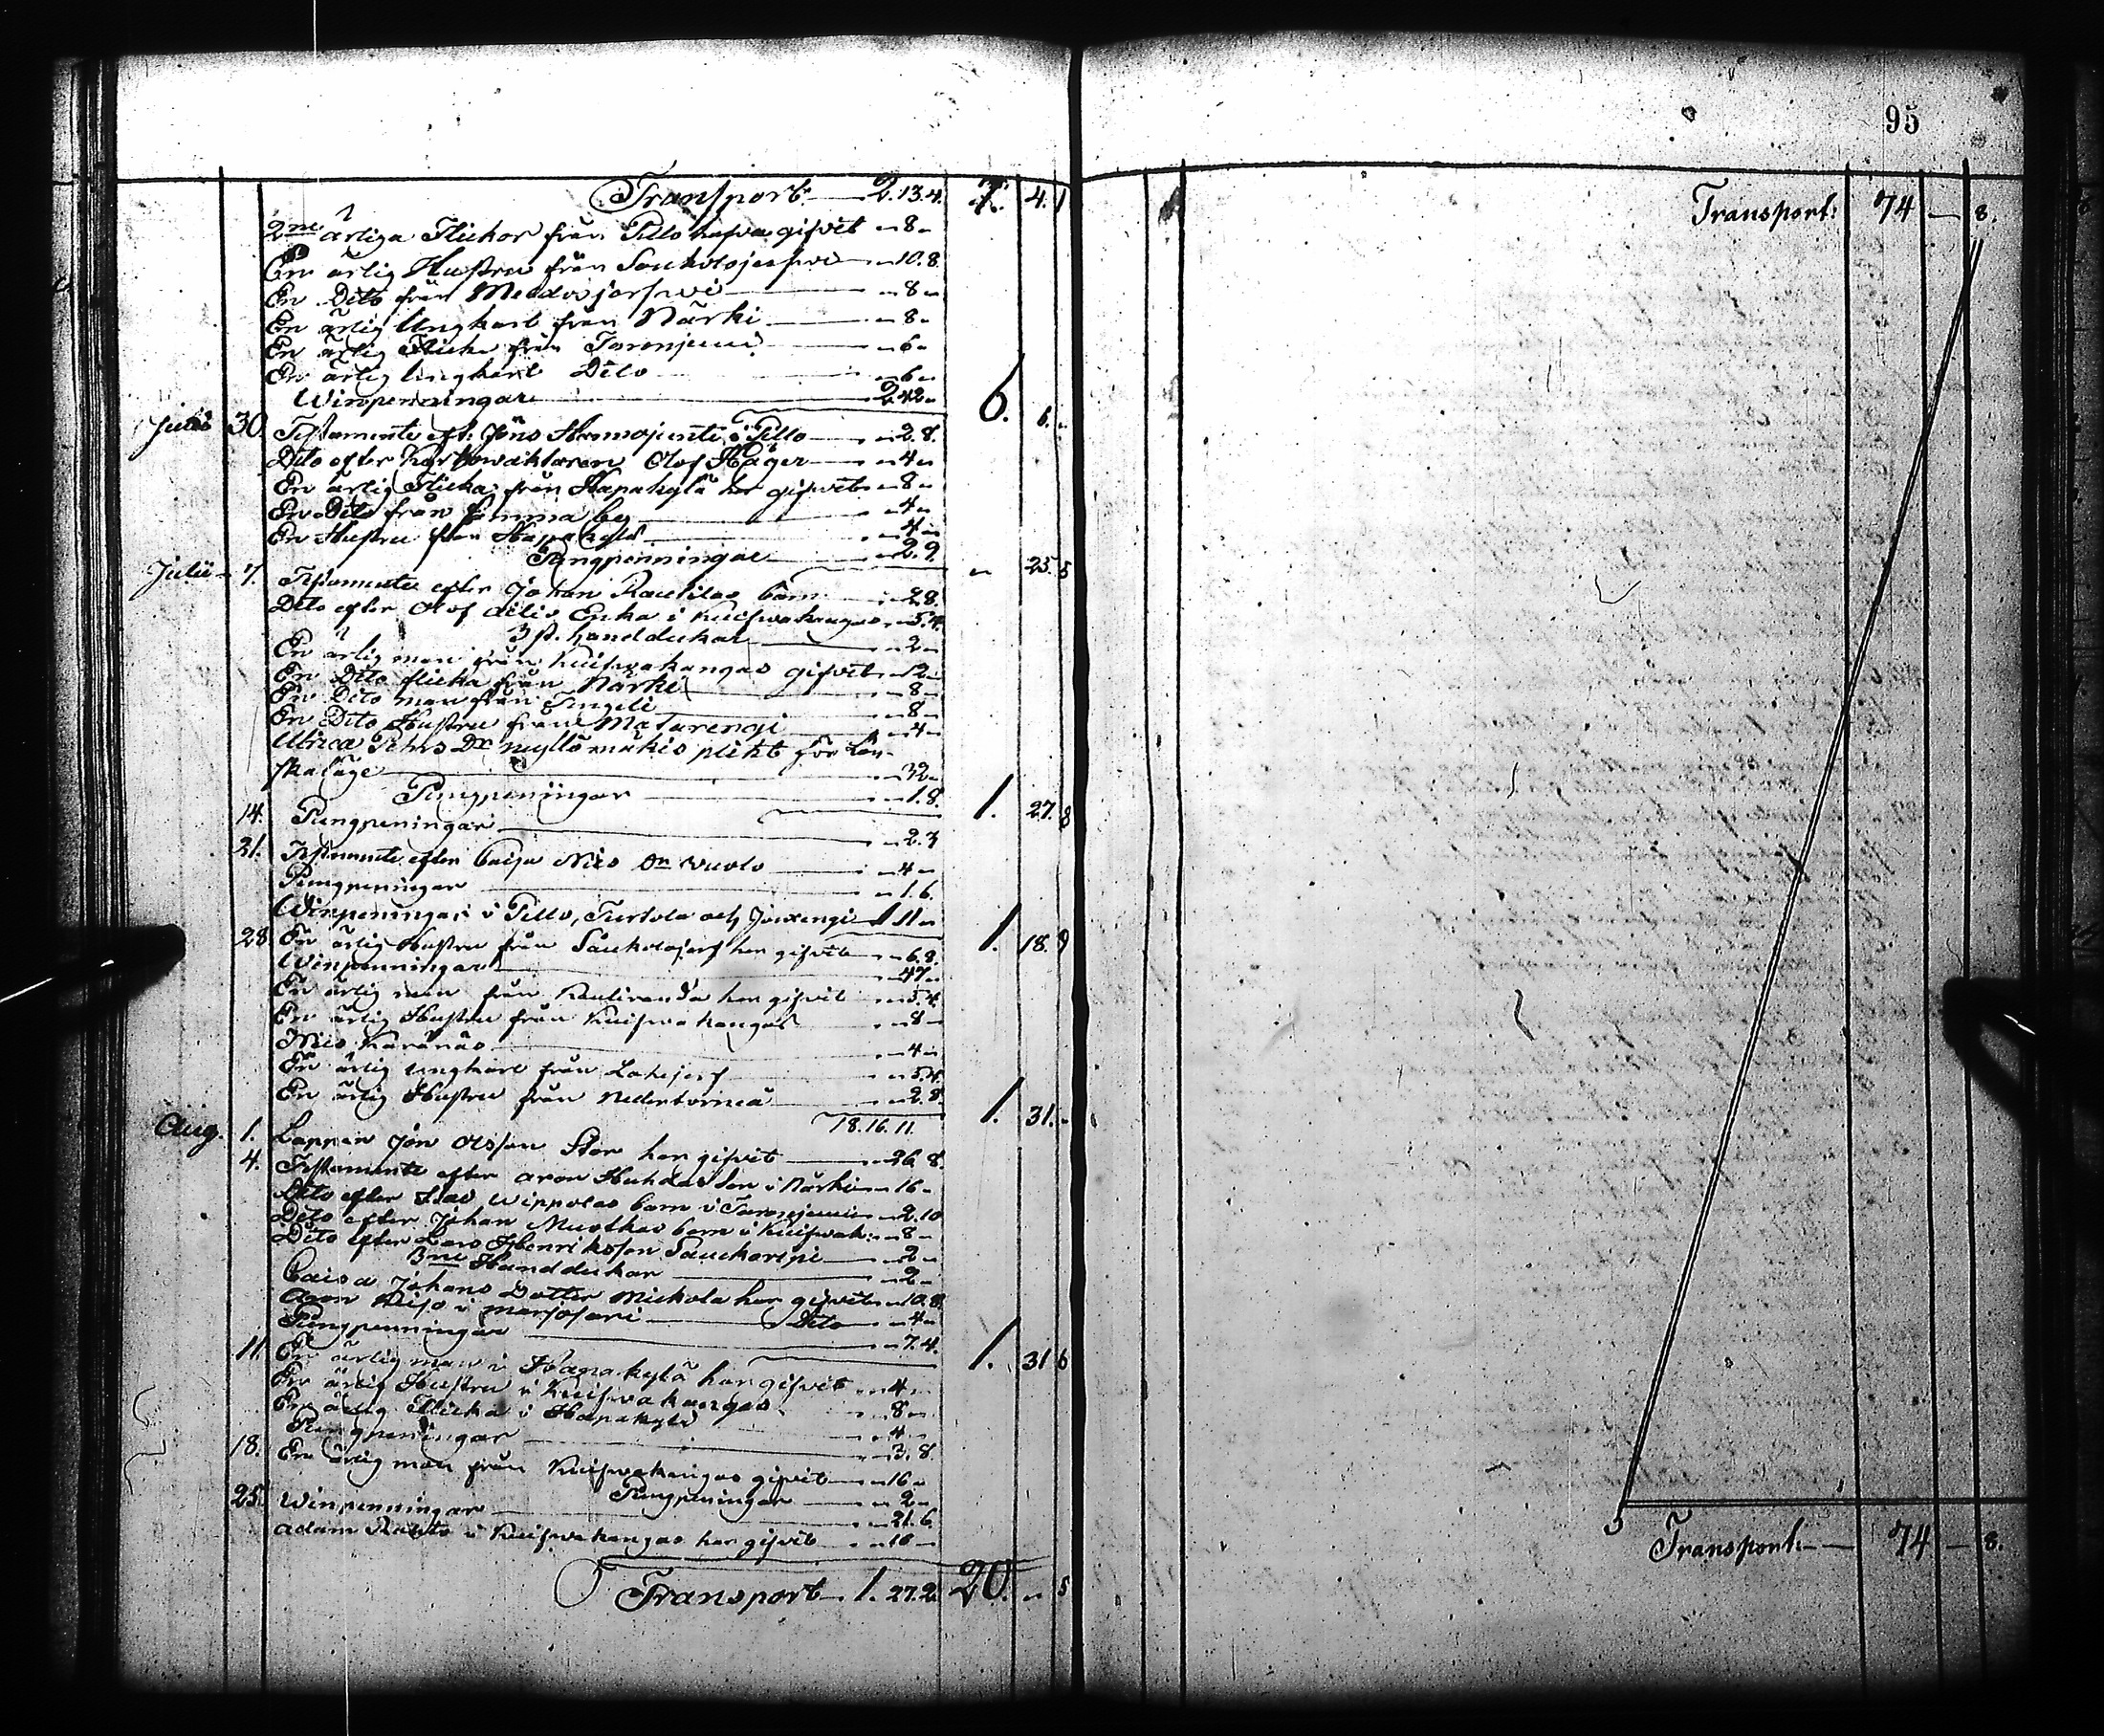 Transport — 2. 13. 4. 7. 4. 1
2ne ärliga Flickor från Pello hafva gifvit „ 8 „
En ärlig Hustru från Saukolojerfwi — „ 10. 8.
En Dito från Meldosjerfwi — „ 8 „
En ärlig Ungkarl från Närki — „ 8 „
En ärlig Flicka från Tarenjemi — „ 6 „
En ärlig Ungkarl Dito — „ 6 „
Winpenningar — 2. 42 „ 6. 6. „
30. Testamente eft. Jöns in Pello — „ 2. 8.
Dito efter Olof Häger — „ 4 „
En ärlig Flicka från Hapakylä har gifvit „ 8 „
En Dito från by — „ 4 „
En Hustru från Hapakylä — „ 4 „
Pungpenningar — „ 2. 9. „ 25. 5
Julii 7. Testamente efter Johan Rautilas barn — „ 2. 8.
Dito efter Olof Enka i Kuifwakangas „ 5. 4.
3 st. handdukar — „ 2 „
En ärlig man från Kuifwakangas gifvit „ 12 „
En Dito flicka från Närki — „ 8 „
En Dito man från — „ 8 „
En Dito Hustru från Matarengi — „ 4 „
Ulrica Pehrs Dr plikt för Lön-
skaläge — „ 32 „
Pungpeningar — „ 1. 8. 1. 27. 8
14. Pungpeningar — „ 2. 3
21. Testamente efter Caisa Nils Dr Vuolo — „ 4 „
Pungpeningar — „ 1. 6.
Winpeningar i Pello, Turtola och Jouxengi 1. 11 „ 1. 18. 9
28. En ärlig Hustru från Saukolojerf har gifvit — „ 6. 8.
Winpenningar — „ 47 „
En ärlig man från Kauliranda har gifvit — „ 5. 4.
En ärlig Hustru från Kuifwakangas — „ 8 „
Nils Karänäs — „ 4 „
En ärlig ungkarl från Lohijerf — „ 5. 4.
En ärlig Hustru från Nedertorneå — „ 2. 8. 1. 31. „
18. 16. 11.
Aug. 1. Lappen Jon Olsson Stor har gifvit — „ 26. 8.
4. Testamente efter Aron Huhdas Son i Närki „ 16 „
Dito efter Isac Wippolas barn i Tarenjemi — „ 2. 10
Dito efter Johan Muotkas barn i Kuifwak: „ 8 „
Dito efter Lars Henriksson Taucharipi — „ 2 „
3ne Handdukar — „ 2 „
Caisa Johans Dotter Mickola har gifvit „ 10. 8.
Aron i Marjosari — Dito — „ 4 „
Pungpenningar — „ 7. 4. 1. 31 6
11. En ärlig man i Hapakylä har gifvit „ 4 „
En ärlig Hustru i Kuifwakangas „ 8 „
En ärlig Flicka i Hapakylä „ 4 „
Pungpeningar — „ 3. 8.
18. En ärlig man från Kuifwakangas gifvit — „ 16 „
Pungpeningar — „ 2 „
25. Winpenningar — „ 21. 6.
Adam Rautio i Kuifwakangas har gifvit — „ 16 „
Transport — 1. 27. 2. 20. „ 5
95
Transport: 74 — 8.
Transport: — 74 — 8.